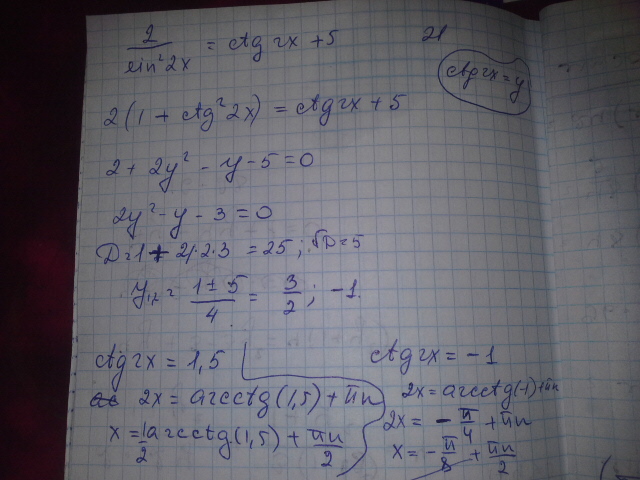 2/sin²2x = ctg 2x + 5
21
ctg 2x = y
2(1 + ctg²2x) = ctg 2x + 5
2 + 2y² - y - 5 = 0
2y² - y - 3 = 0
D = 1 + 4·2·3 = 25; √D = 5
y₁,₂ = (1 ± 5)/4 = 3/2; -1.
ctg 2x = 1,5
2x = arcctg(1,5) + πn
x = 1/2 arcctg(1,5) + πn/2
ctg 2x = -1
2x = arcctg(-1) + πn
2x = - π/4 + πn
x = - π/8 + πn/2